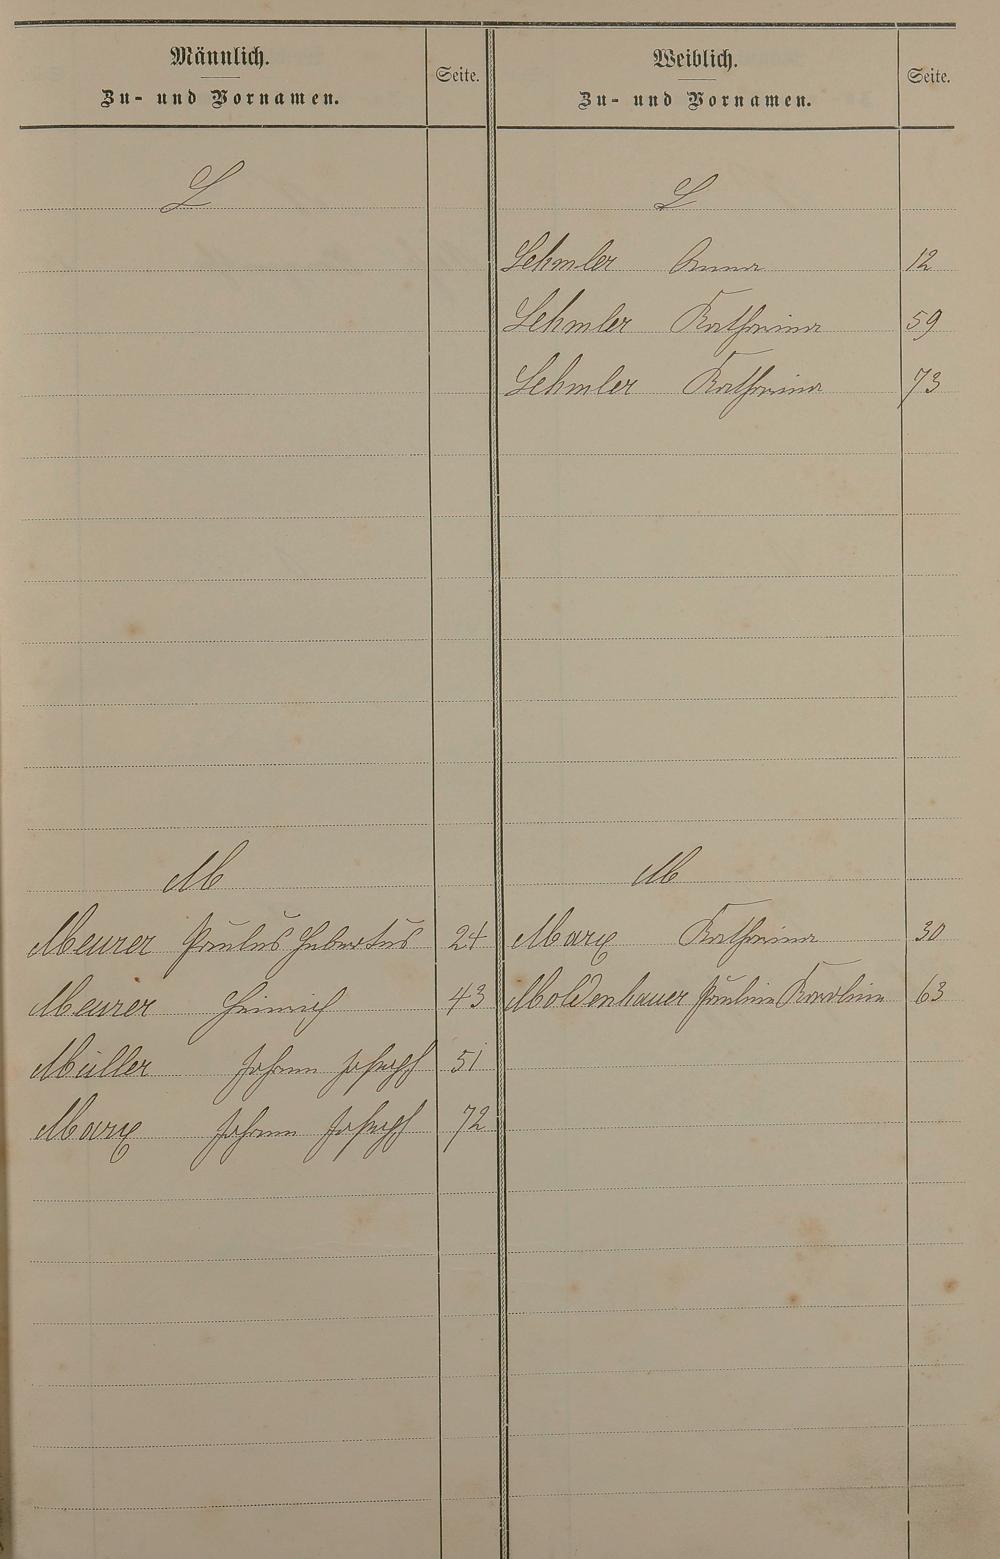 Männlich.
Zu- und Vornamen.
Seite.
L
M
Meurer Paulus Hubertus 24
Meurer Heinrich 43
Müller Johann Joseph 51
Marx Johann Joseph 72
Weiblich.
Zu- und Vornamen.
Seite.
L
Lehmler Anna 12
Lehmler Katharina 59
Lehmler Katharina 73
M
Marx Katharina 30
Moldenhauer Pauline Karoline 63